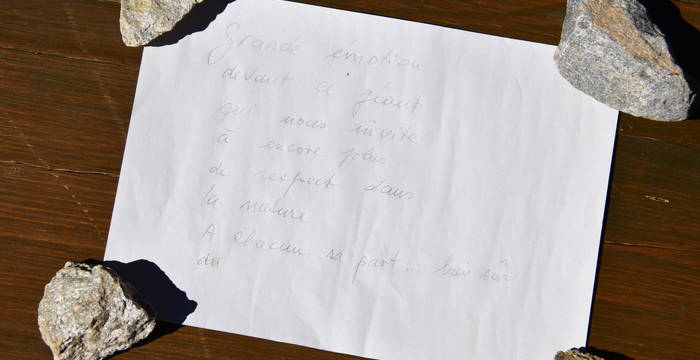 Grande émotion
devant ce géant
qui nous invite
à encore plus
de respect dans
la nature
A chacun sa part... bien sûr